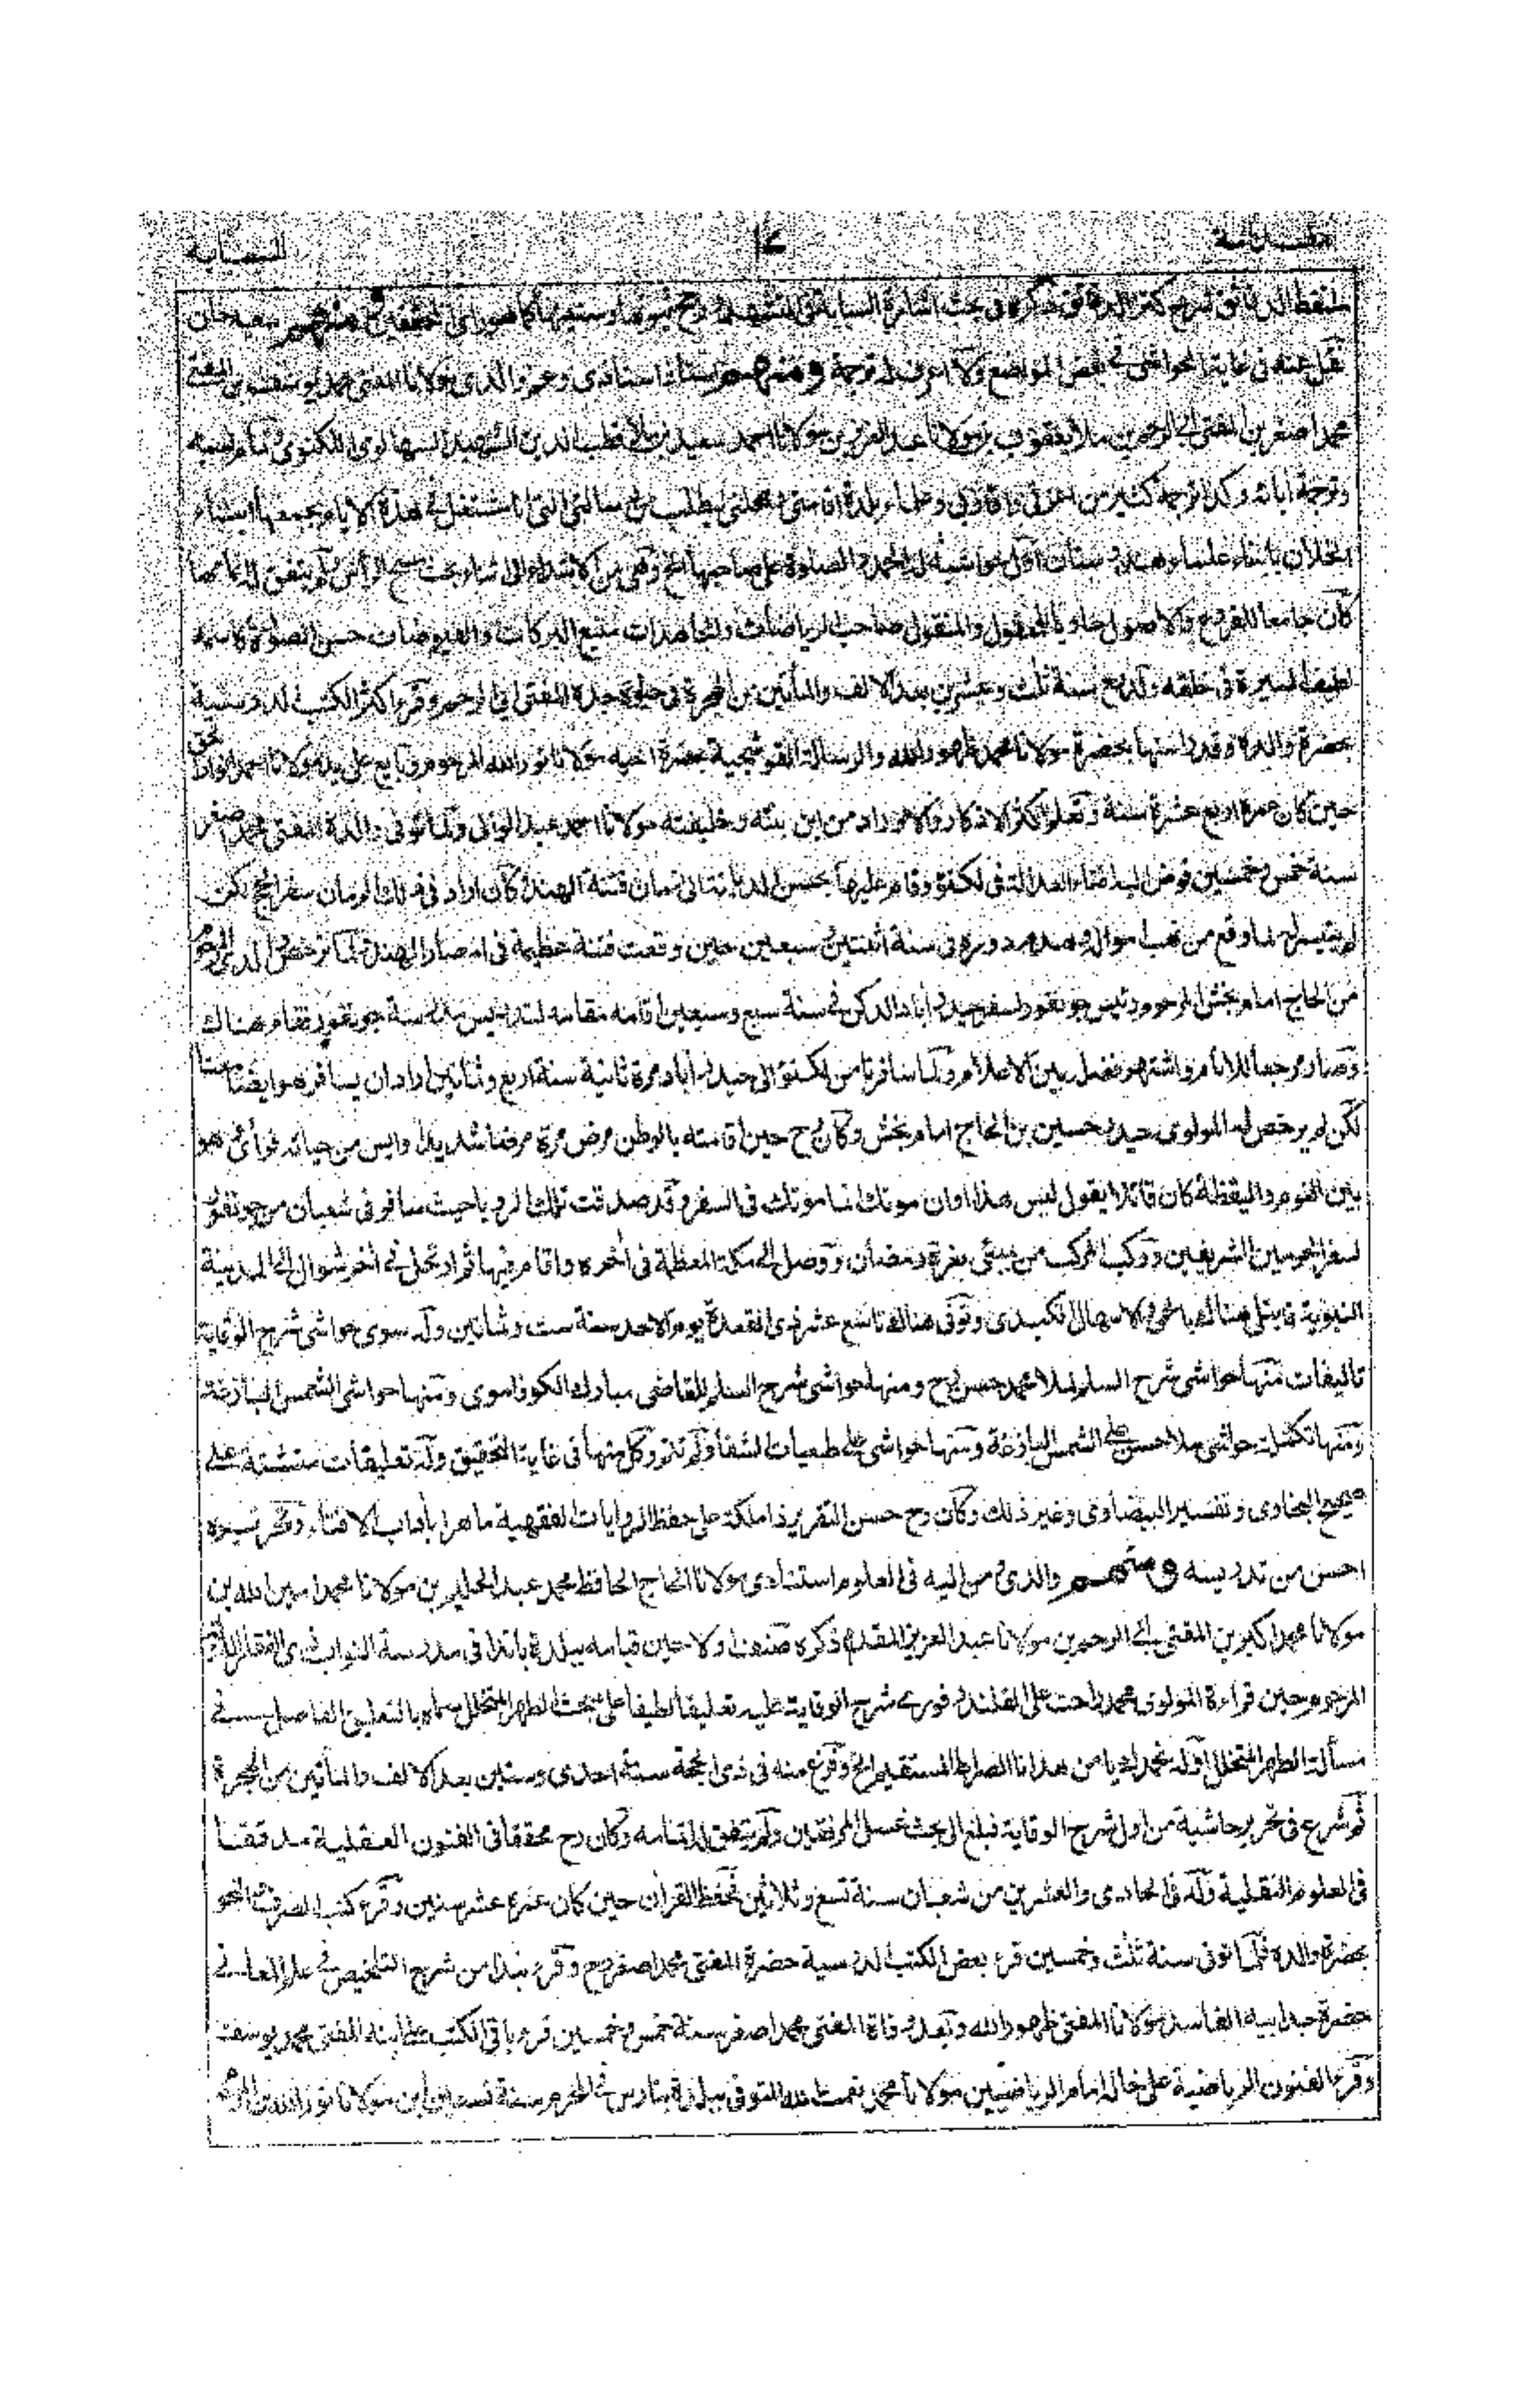 مقدمة ٤١ السعاية
شرح كنز الدقائق ذكره في بحث اشارة السبابة في التشهد ورجح ثبوتها وسنيتها كما هو راى المحققين ومنهم سعيد خان
نقل عنه في غاية الحواشى في بعض المواضع ولا اعرف له ترجمة ومنهم استاذ استاذى وعم والدى مولانا المفتى محمد يوسف بن المفتى
محمد اصغر بن المفتى ابى الرحم بن ملا يعقوب بن مولانا عبد العزيز بن مولانا احمد سعيد بن ملا قطب الدين الشهيد السهالوى اللكنوى تمام نسبه
وترجمة ابائه وكذا ترجمة كثير من اعزتى واقاربى وعلماء بلدة اقامتى ومحلتى يطلب من رسالتى التى انا مشتغل في هذه الايام بجمعها انباء
الخلان بانباء علماء هندوستان اول حواشيه لك الحمد والصلوة على صاحبها الخ وهى من الابتداء الى اثناء بحث مسح الرأس لم يتفق له اتمامها
كان جامعا للفروع والاصول حاويا للمعقول والمنقول صاحب الرياضات والمجاهدات منبع البركات والفيوضات حسن الصلوة
لطيف السيرة في خلقه ولد سنة ثلث وعشرين بعد الالف والمأتين من الهجرة في حيوة جده المفتى ابى الرحم وقرء اكثر الكتب الدرسية
بحضرة والده وقدرا منها بحضرة مولانا محمد ظهور الله والرسالة القوشجية بحضرة اخيه مولانا نور الله المرحوم وبايع على يد مولانا احمد انوار الحق
حين كان عمره اربع عشرة سنة وتعلم اكثر الاذكار والاوراد من ابن بنته وخليفته مولانا احمد عبد الوالى ولما توفى والده المفتى محمد اصغر
سنة خمس وخمسين فوض اليه افتاء العدالة في لكنؤ وقام عليها بحسن الديانة الى زمان فتنة الهند وكان اراد في ذلك الزمان سفر الحج لكن
لم يتيسر له لما وقع من نهب امواله وهدم دوره في سنة اثنتين وسبعين حين وقعت فتنة عظيمة في امصار الهند ثم لما ترخص والدى المرحوم
من الحاج امام بخش المرحوم رئيس جونفور لسفر حيدرآباد الدكن في سنة سبع وسبعين اقامه مقامه لتدريس مدرسة جونفور فقام هناك
وصار مرجعا للانام واشتهر فضله بين الاعلام ولما سافرنا من لكنؤ الى حيدرآباد مرة ثانية سنة اربع وثمانين اراد ان يسافر هو ايضا معنا
لكن لم يرخص له المولوى حيدر حسين بن الحاج امام بخش وكان رح حين اقامته بالوطن مرض مرة مرضا شديدا وايس من حياته فرأى هو
بين النوم واليقظة كان قائلا يقول ليس هذا اوان موتك انما موتك في السفر وقد صدقت تلك الرويا حيث سافر في شعبان من جونفور
لسفر الحرمين الشريفين وركب المركب من بمبئى بغرة رمضان ووصل الى مكة المعظمة في أخره واقام فيها ثم ارتحل في أخر شوال الى المدينة
النبوية فابتلى هناك بالحمى والاسهال الكبدى وتوفى هناك تاسع عشر ذى القعدة يوم الاحد سنة ست وثمانين وله سوى حواشى شرح الوقاية
تاليفات منها حواشى شرح السلم لملا محمد حسن رح ومنها حواشى شرح السلم للقاضى مبارك الكوفاموى ومنها حواشى الشمس البازغة
ومنها تكملة حواشى ملا حسن على الشمس البازغة ومنها حواشى على طبعيات الشفا ولم تتم وكل منها في غاية التحقيق وله تعليقات منتشتة على
صحيح البخارى وتفسير البيضاوى وغير ذلك وكان رح حسن التقرير ذا ملكة على حفظ الروايات الفقهية ماهرا بأداب الافتاء وتحريره
احسن من تدريسه ومنهم والدى ومن اليه في العلوم استنادى مولانا الحاج الحافظ محمد عبد الحليم بن مولانا محمد امين الله بن
مولانا محمد اكبر بن المفتى ابى الرحم بن مولانا عبد العزيز المقدم ذكره صنف اولا حين قيامه ببلدة باندا في مدرسة النواب ذى الفقار الدولة
المرحوم حين قراءة المولوى محمد راحت على القلندرفورى شرح الوقاية عليه تعليقا لطيفا على بحث الطهر المتخلل سماه بالتعليق الفاصل في
مسألة الطهر المتخلل اوله نحمدك يا من هدانا الصراط المستقيم الخ وفرغ منه في ذى الحجة سنة احدى وستين بعد الالف والمأتين من الهجرة
ثم شرع في تحرير حاشية من اول شرح الوقاية فبلغ الى بحث غسل المرفقين ولم يتفق له اتمامه وكان رح محققا في الفنون العقلية مدققا
في العلوم النقلية ولد في الحادى والعشرين من شعبان سنة تسع وثلاثين فحفظ القران حين كان عمره عشر سنين وقرء كتب الصرف والنحو
بحضرة والده فلما توفى سنة ثلث وخمسين قرء بعض الكتب الدرسية حضرة المفتى محمد اصغر رح وقرء نبذا من شرح التلخيص في علم المعانى
حضرة جد ابيه الفاسد مولانا المفتى ظهور الله وبعد وفاة المفتى محمد اصغر سنة خمس وخمسين قرء باقى الكتب على ابنه المفتى محمد يوسف
وقرء الفنون الرياضية على خاله امام الرياضيين مولانا محمد نعمت الله المتوفى ببلدة بنارس في المحرم سنة تسعين ابن مولانا نور الله